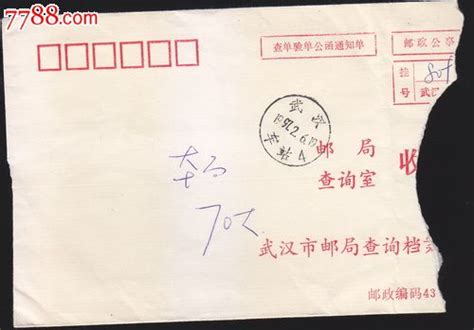 7788.com
查单验单公函通知单
邮政公事
挂
号
801
武汉
武汉
1992.2.6.19
车站4
邮局
查询室
收
本石
702
武汉市邮局查询档案
邮政编码43